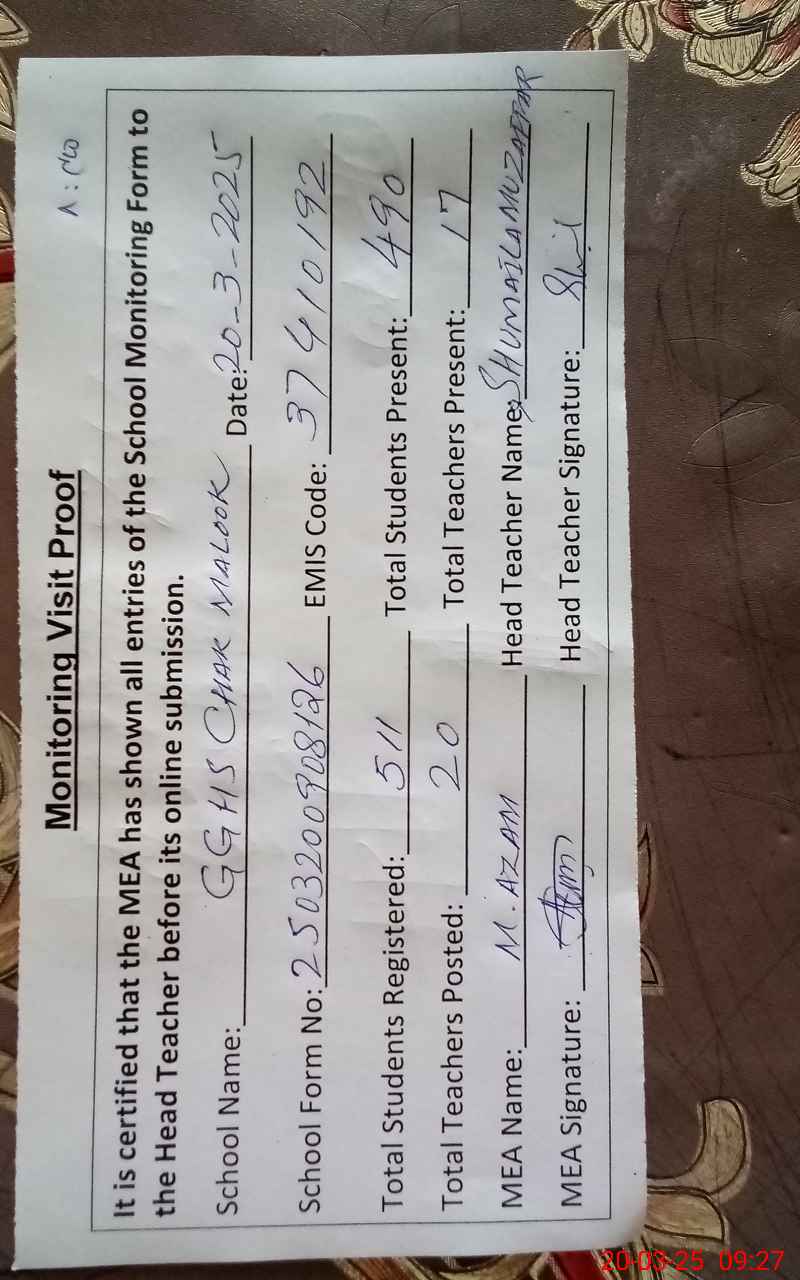 Monitoring Visit Proof
It is certified that the MEA has shown all entries of the School Monitoring Form to
the Head Teacher before its online submission.
School Name: GGHS CHAK MALOOK Date: 20-3-2025
School Form No: 2503200908126 EMIS Code: 37410192
Total Students Registered: 511 Total Students Present: 490
Total Teachers Posted: 20 Total Teachers Present: 17
MEA Name: M. AZAM Head Teacher Name: SHUMAILA MUZAFFAR
MEA Signature: Head Teacher Signature:
20-03-25 09:27